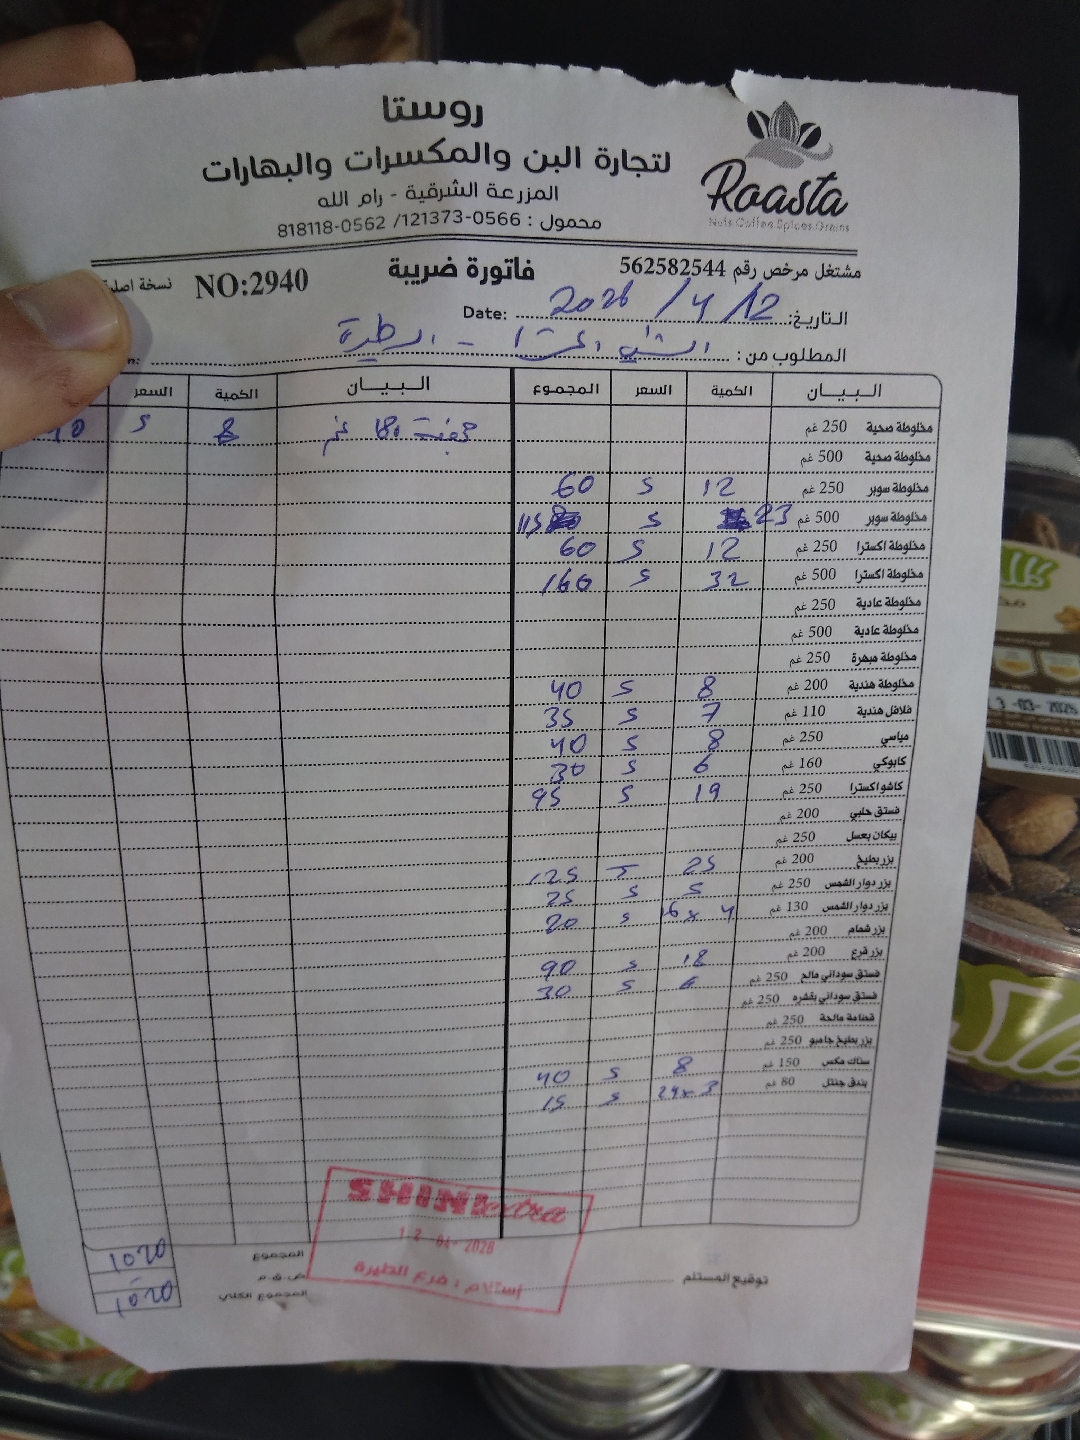 روستا
لتجارة البن والمكسرات والبهارات
المزرعة الشرقية - رام الله
محمول : 0566-121373/ 0562-818118
Roasta
Nuts.Coffee.Spices.Grains
مشتغل مرخص رقم 562582544 فاتورة ضريبة NO:2940 نسخة
التاريخ: 2026 / 4 / 12 Date:
المطلوب من : الشني اكسترا - الطيرة
البـيـان الكمية السعر المجموع البـيـان الكمية السعر
مخلوطة صحية 250 غم 180 غم 5
مخلوطة صحية 500 غم
مخلوطة سوبر 250 غم 12 5 60
مخلوطة سوبر 500 غم 23 5 115
مخلوطة اكسترا 250 غم 12 5 60
مخلوطة اكسترا 500 غم 32 5 160
مخلوطة عادية 250 غم
مخلوطة عادية 500 غم
مخلوطة مبهرة 250 غم
مخلوطة هندية 200 غم 8 5 40
فلافل هندية 110 غم 7 5 35
مياسي 250 غم 8 5 40
كابوكي 160 غم 6 5 30
كاشو اكسترا 250 غم 19 5 95
فستق حلبي 200 غم
بيكان بعسل 250 غم
بزر بطيخ 200 غم 25 5 125
بزر دوار الشمس 250 غم 5 5 25
بزر دوار الشمس 130 غم 16 x 4 5 20
بزر شمام 200 غم
بزر قرع 200 غم 18 5 90
فستق سوداني مالح 250 غم 6 5 30
فستق سوداني بقشره 250 غم
قضامة مالحة 250 غم
بزر بطيخ جامبو 250 غم
ستاك مكس 150 غم 8 5 40
بندق جنتل 80 غم 24 x 3 5 15
SHINI extra
12 -04- 2026
إستلام : فرع الطيرة
المجموع 1020
ض.ق.م
المجموع الكلي 1020
توقيع المستلم